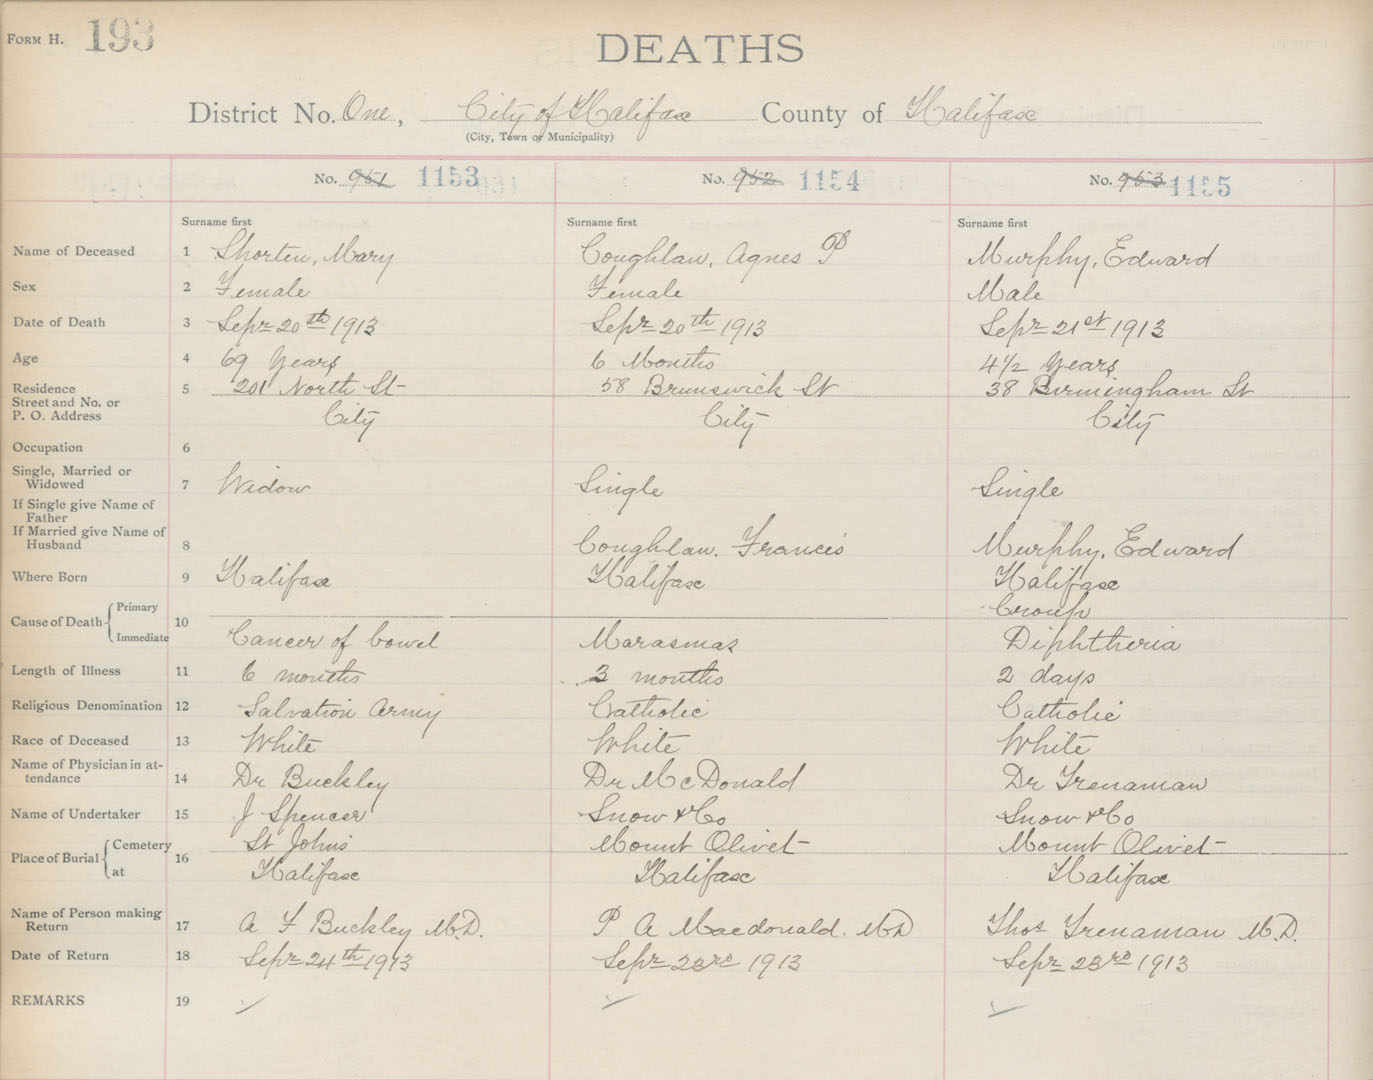 FORM H. 193
DEATHS
District No. One, City of Halifax County of Halifax
(City, Town or Municipality)
No. 951 1153 No. 952 1154 No. 953 1155
Surname first Surname first Surname first
Name of Deceased 1 Shorten, Mary Coughlan, Agnes P Murphy, Edward
Sex 2 Female Female Male
Date of Death 3 Sepr 20th 1913 Sepr 20th 1913 Sepr 21st 1913
Age 4 69 Years 6 Months 4 1/2 Years
Residence 5 201 North St 58 Brunswick St 38 Birmingham St
Street and No. or
P. O. Address City City City
Occupation 6
Single, Married or
Widowed 7 Widow Single Single
If Single give Name of
Father
If Married give Name of
Husband 8 Coughlan. Francis Murphy, Edward
Where Born 9 Halifax Halifax Halifax
Cause of Death Primary 10 Croup
Immediate Cancer of bowel Marasmas Diphtheria
Length of Illness 11 6 months 3 months 2 days
Religious Denomination 12 Salvation Army Catholic Catholic
Race of Deceased 13 White White White
Name of Physician in at-
tendance 14 Dr Buckley Dr McDonald Dr Trenaman
Name of Undertaker 15 J Spencer Snow & Co Snow & Co
Place of Burial Cemetery 16 St Johns Mount Olivet Mount Olivet
at Halifax Halifax Halifax
Name of Person making
Return 17 A F Buckley M.D. P A Macdonald. MD Thos Trenaman M.D.
Date of Return 18 Sepr 24th 1913 Sepr 23rd 1913 Sepr 23rd 1913
REMARKS 19